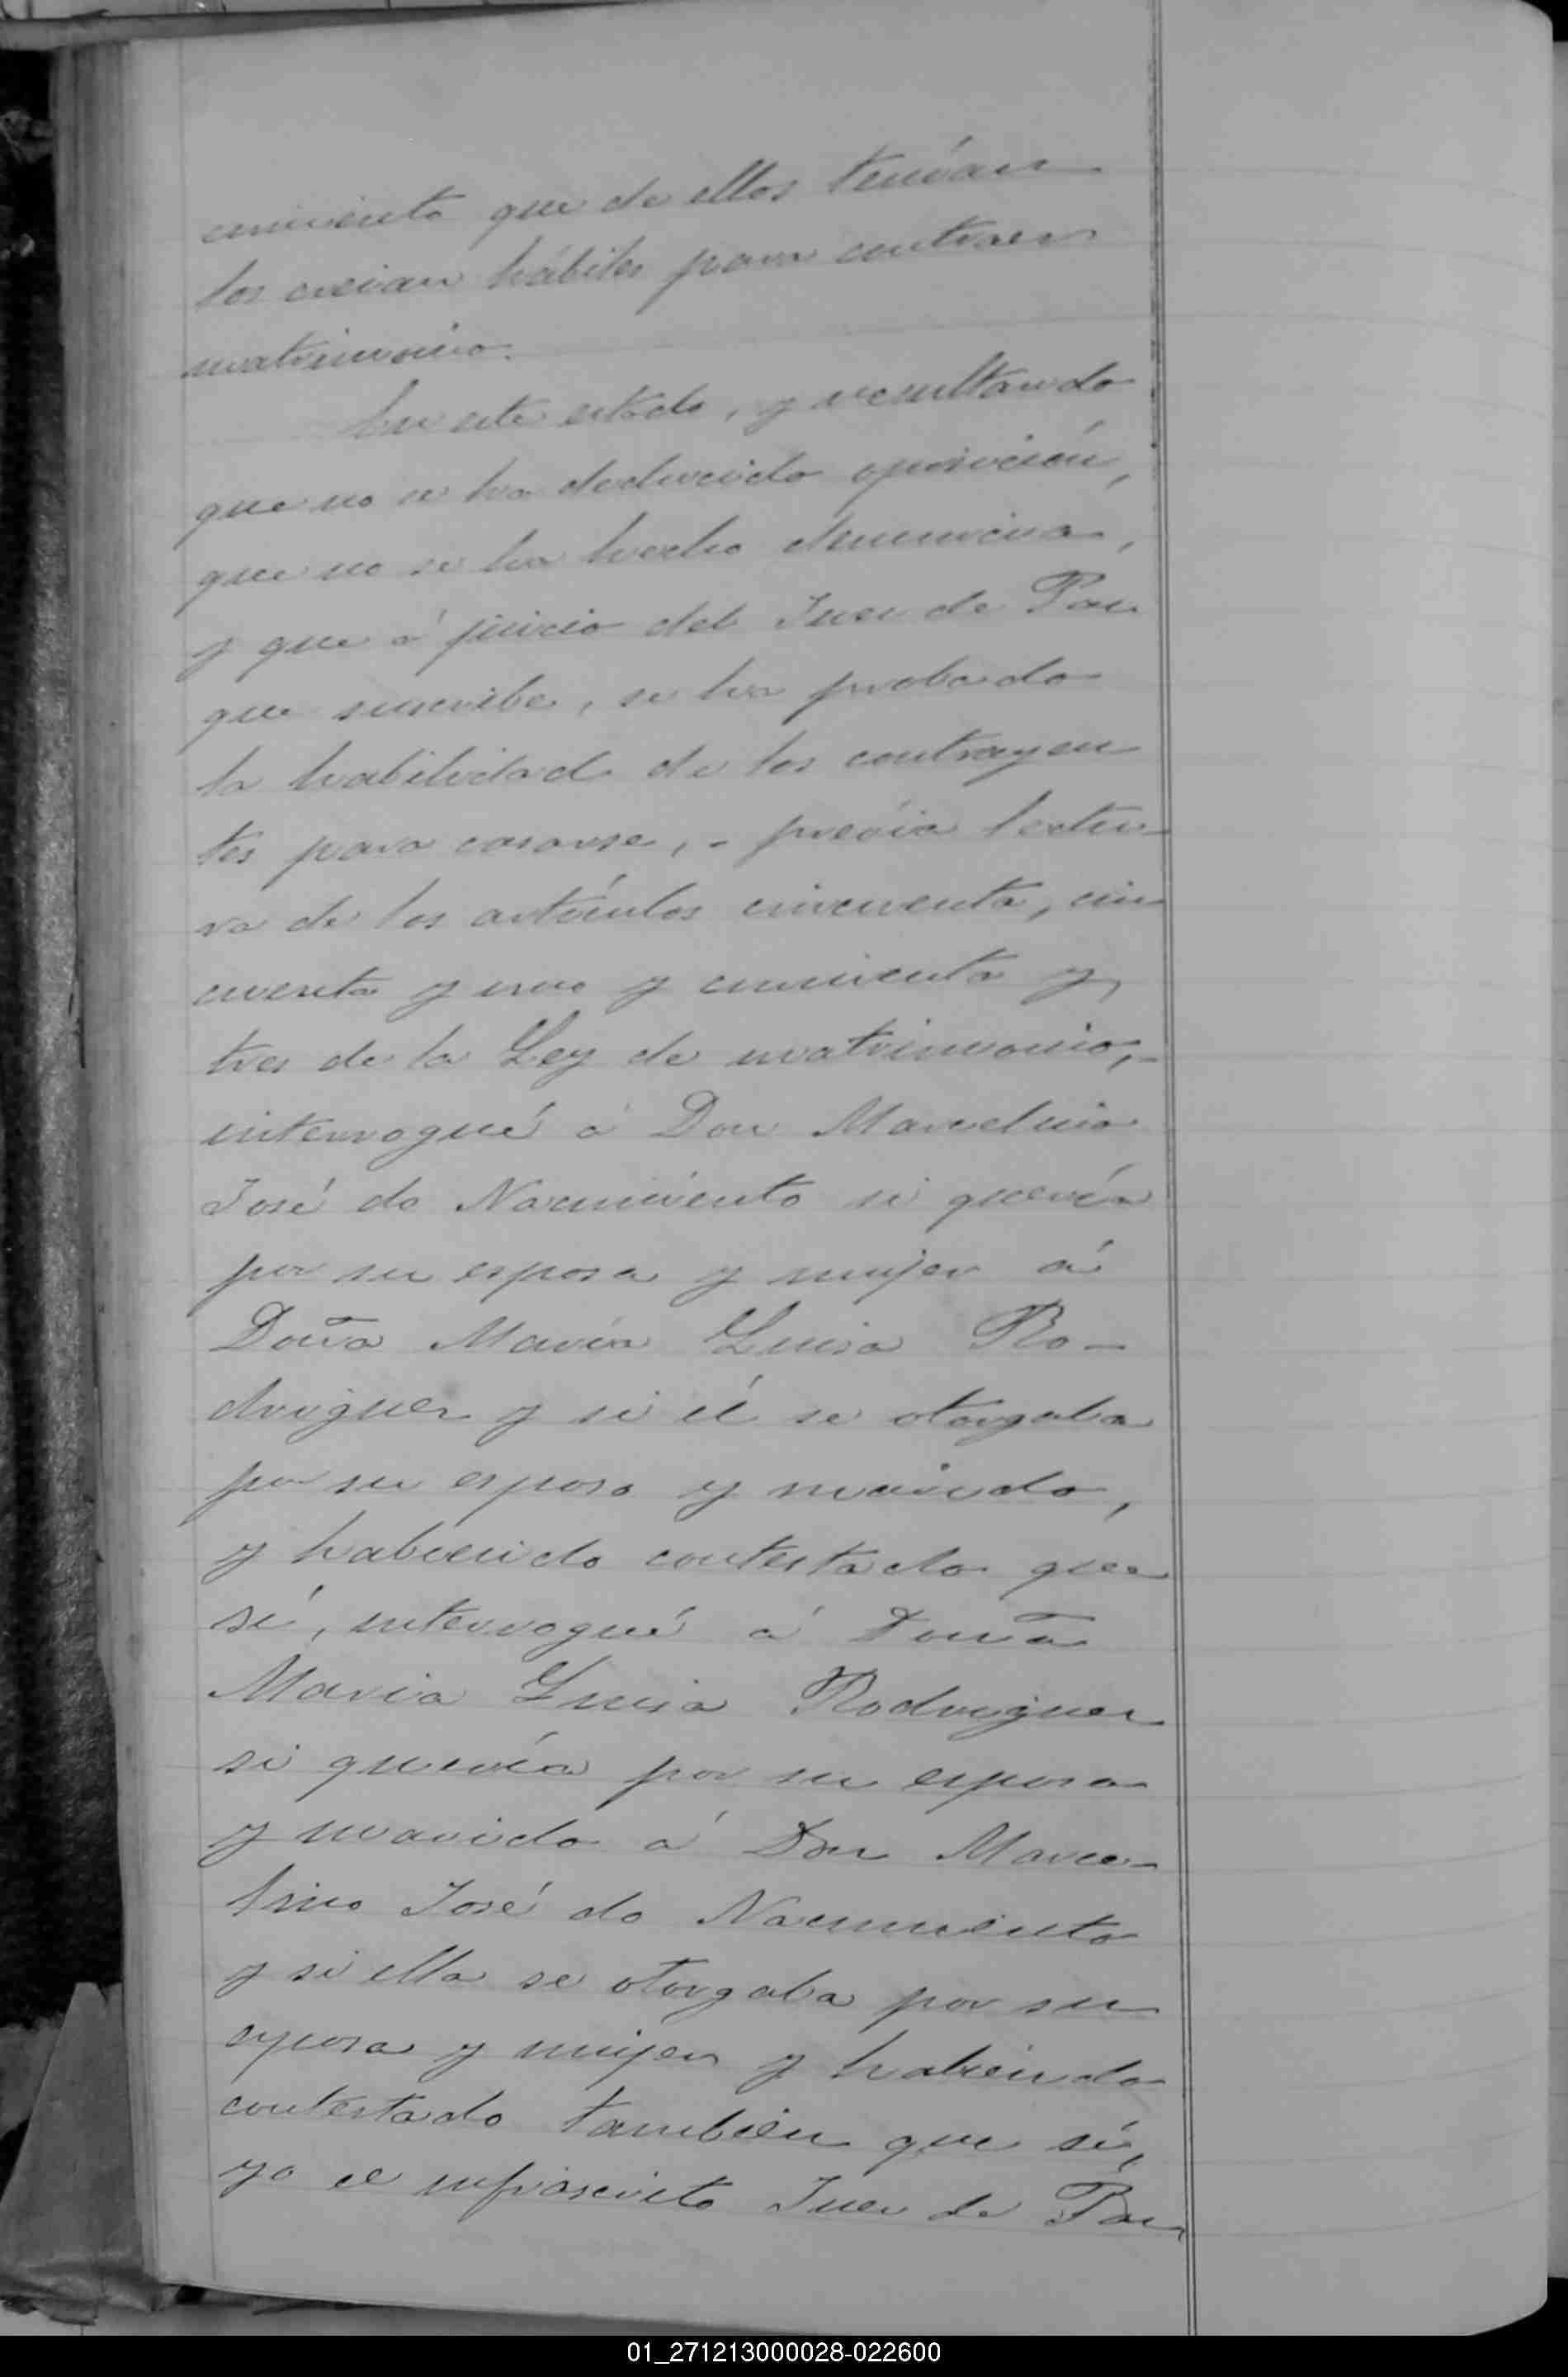 cimiento que de ellos tenían
los creian hábiles para contraer
matrimonio.
En este estado, y resultando
que no se ha deducido oposición,
que no se ha hecho denuncia,
y que á juicio del Juez de Paz
que suscribe, se ha probado
la habilidad de los contrayen
tes para casarse, - prévia lectu-
ra de los artículos cincuenta, cin
cuenta y uno y cincuenta y
tres de la Ley de matrimonio,-
interrogué á Don Marcelino
José do Nacimiento si quería
por su esposa y mujer á
Doña María Luisa Ro-
driguez y si él se otorgaba
por su esposo y marido,
y habiendo contestado que
sí, interrogué á Doña
Maria Luisa Rodriguez
si quería por su esposo
y marido á Don Marce-
lino José do Nacimiento
y si ella se otorgaba por su
esposa y mujer y habiendo
contestado tambien que sí,
yo el infrascrito Juez de Paz
01_271213000028-022600